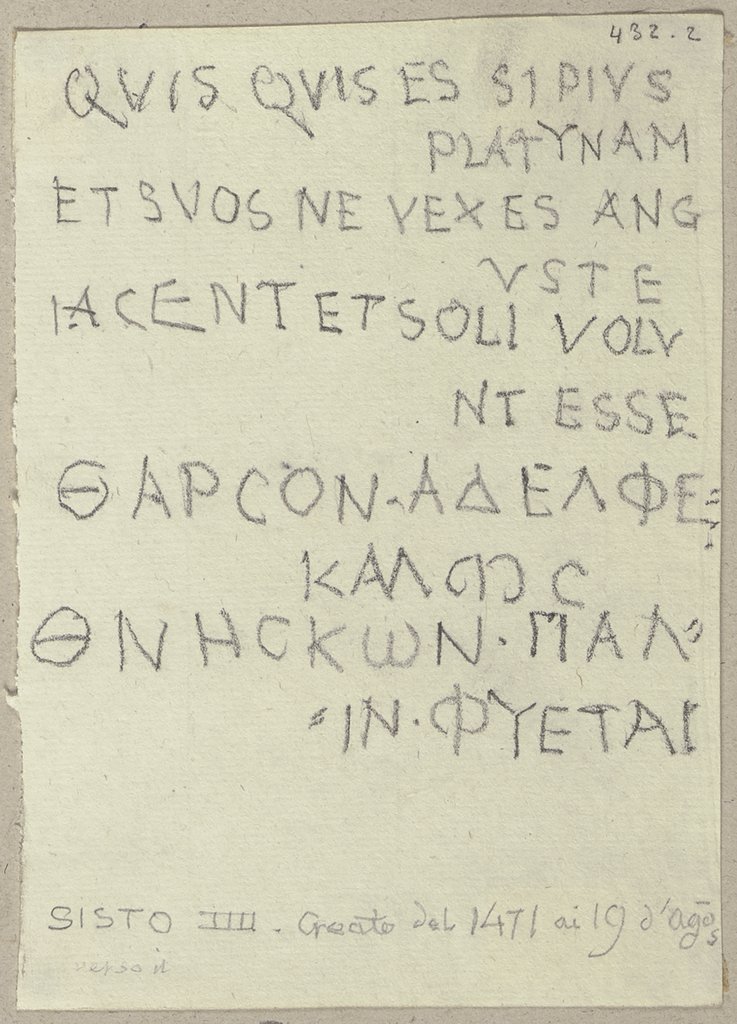 432.2
QVIS QVIS ES SI PIVS
PLATYNAM
ET SVOS NE VEXES ANG
VSTE
IACENT ET SOLI VOLV
NT ESSE
ΘΑΡCΟΝ·ΑΔΕΛΦΕ
ΚΑΛѠC
ΘΝΗCΚωΝ·ΠΑΛ=
=ΙΝ·ΦΥΕΤΑΙ
SISTO IIII. Creato del 1471 ai 19 d'agōs
verso il